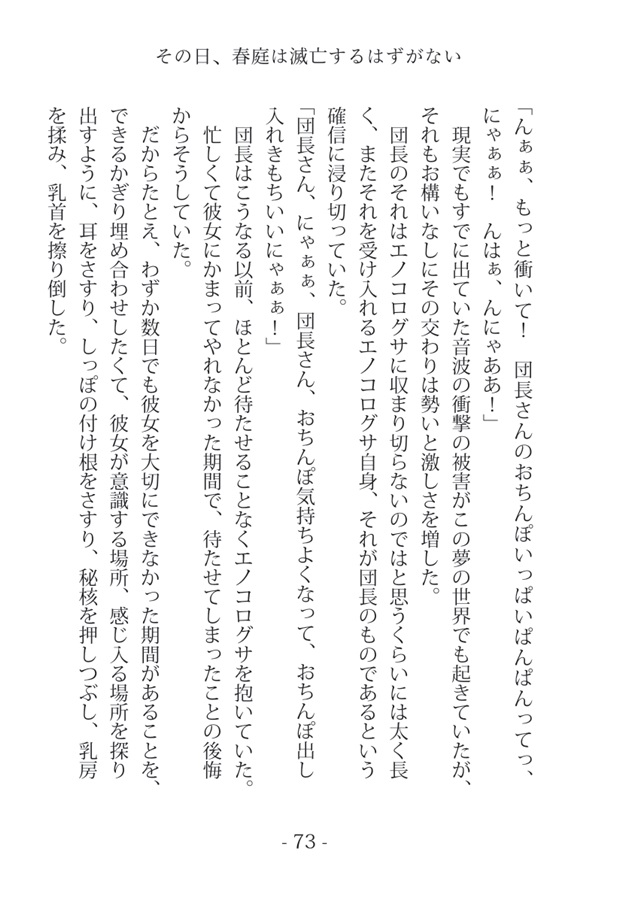 その日、春庭は滅亡するはずがない
「んぁぁ、もっと衝いて！　団長さんのおちんぽいっぱいぱんぱんってっ、
にゃぁぁ！　んはぁ、んにゃああ！」
　現実でもすでに出ていた音波の衝撃の被害がこの夢の世界でも起きていたが、
それもお構いなしにその交わりは勢いと激しさを増した。
　団長のそれはエノコログサに収まり切らないのではと思うくらいには太く長
く、またそれを受け入れるエノコログサ自身、それが団長のものであるという
確信に浸り切っていた。
「団長さん、にゃぁぁ、団長さん、おちんぽ気持ちよくなって、おちんぽ出し
入れきもちいいにゃぁぁ！」
　団長はこうなる以前、ほとんど待たせることなくエノコログサを抱いていた。
　忙しくて彼女にかまってやれなかった期間で、待たせてしまったことの後悔
からそうしていた。
　だからたとえ、わずか数日でも彼女を大切にできなかった期間があることを、
できるかぎり埋め合わせしたくて、彼女が意識する場所、感じ入る場所を探り
出すように、耳をさすり、しっぽの付け根をさすり、秘核を押しつぶし、乳房
を揉み、乳首を擦り倒した。
- 73 -